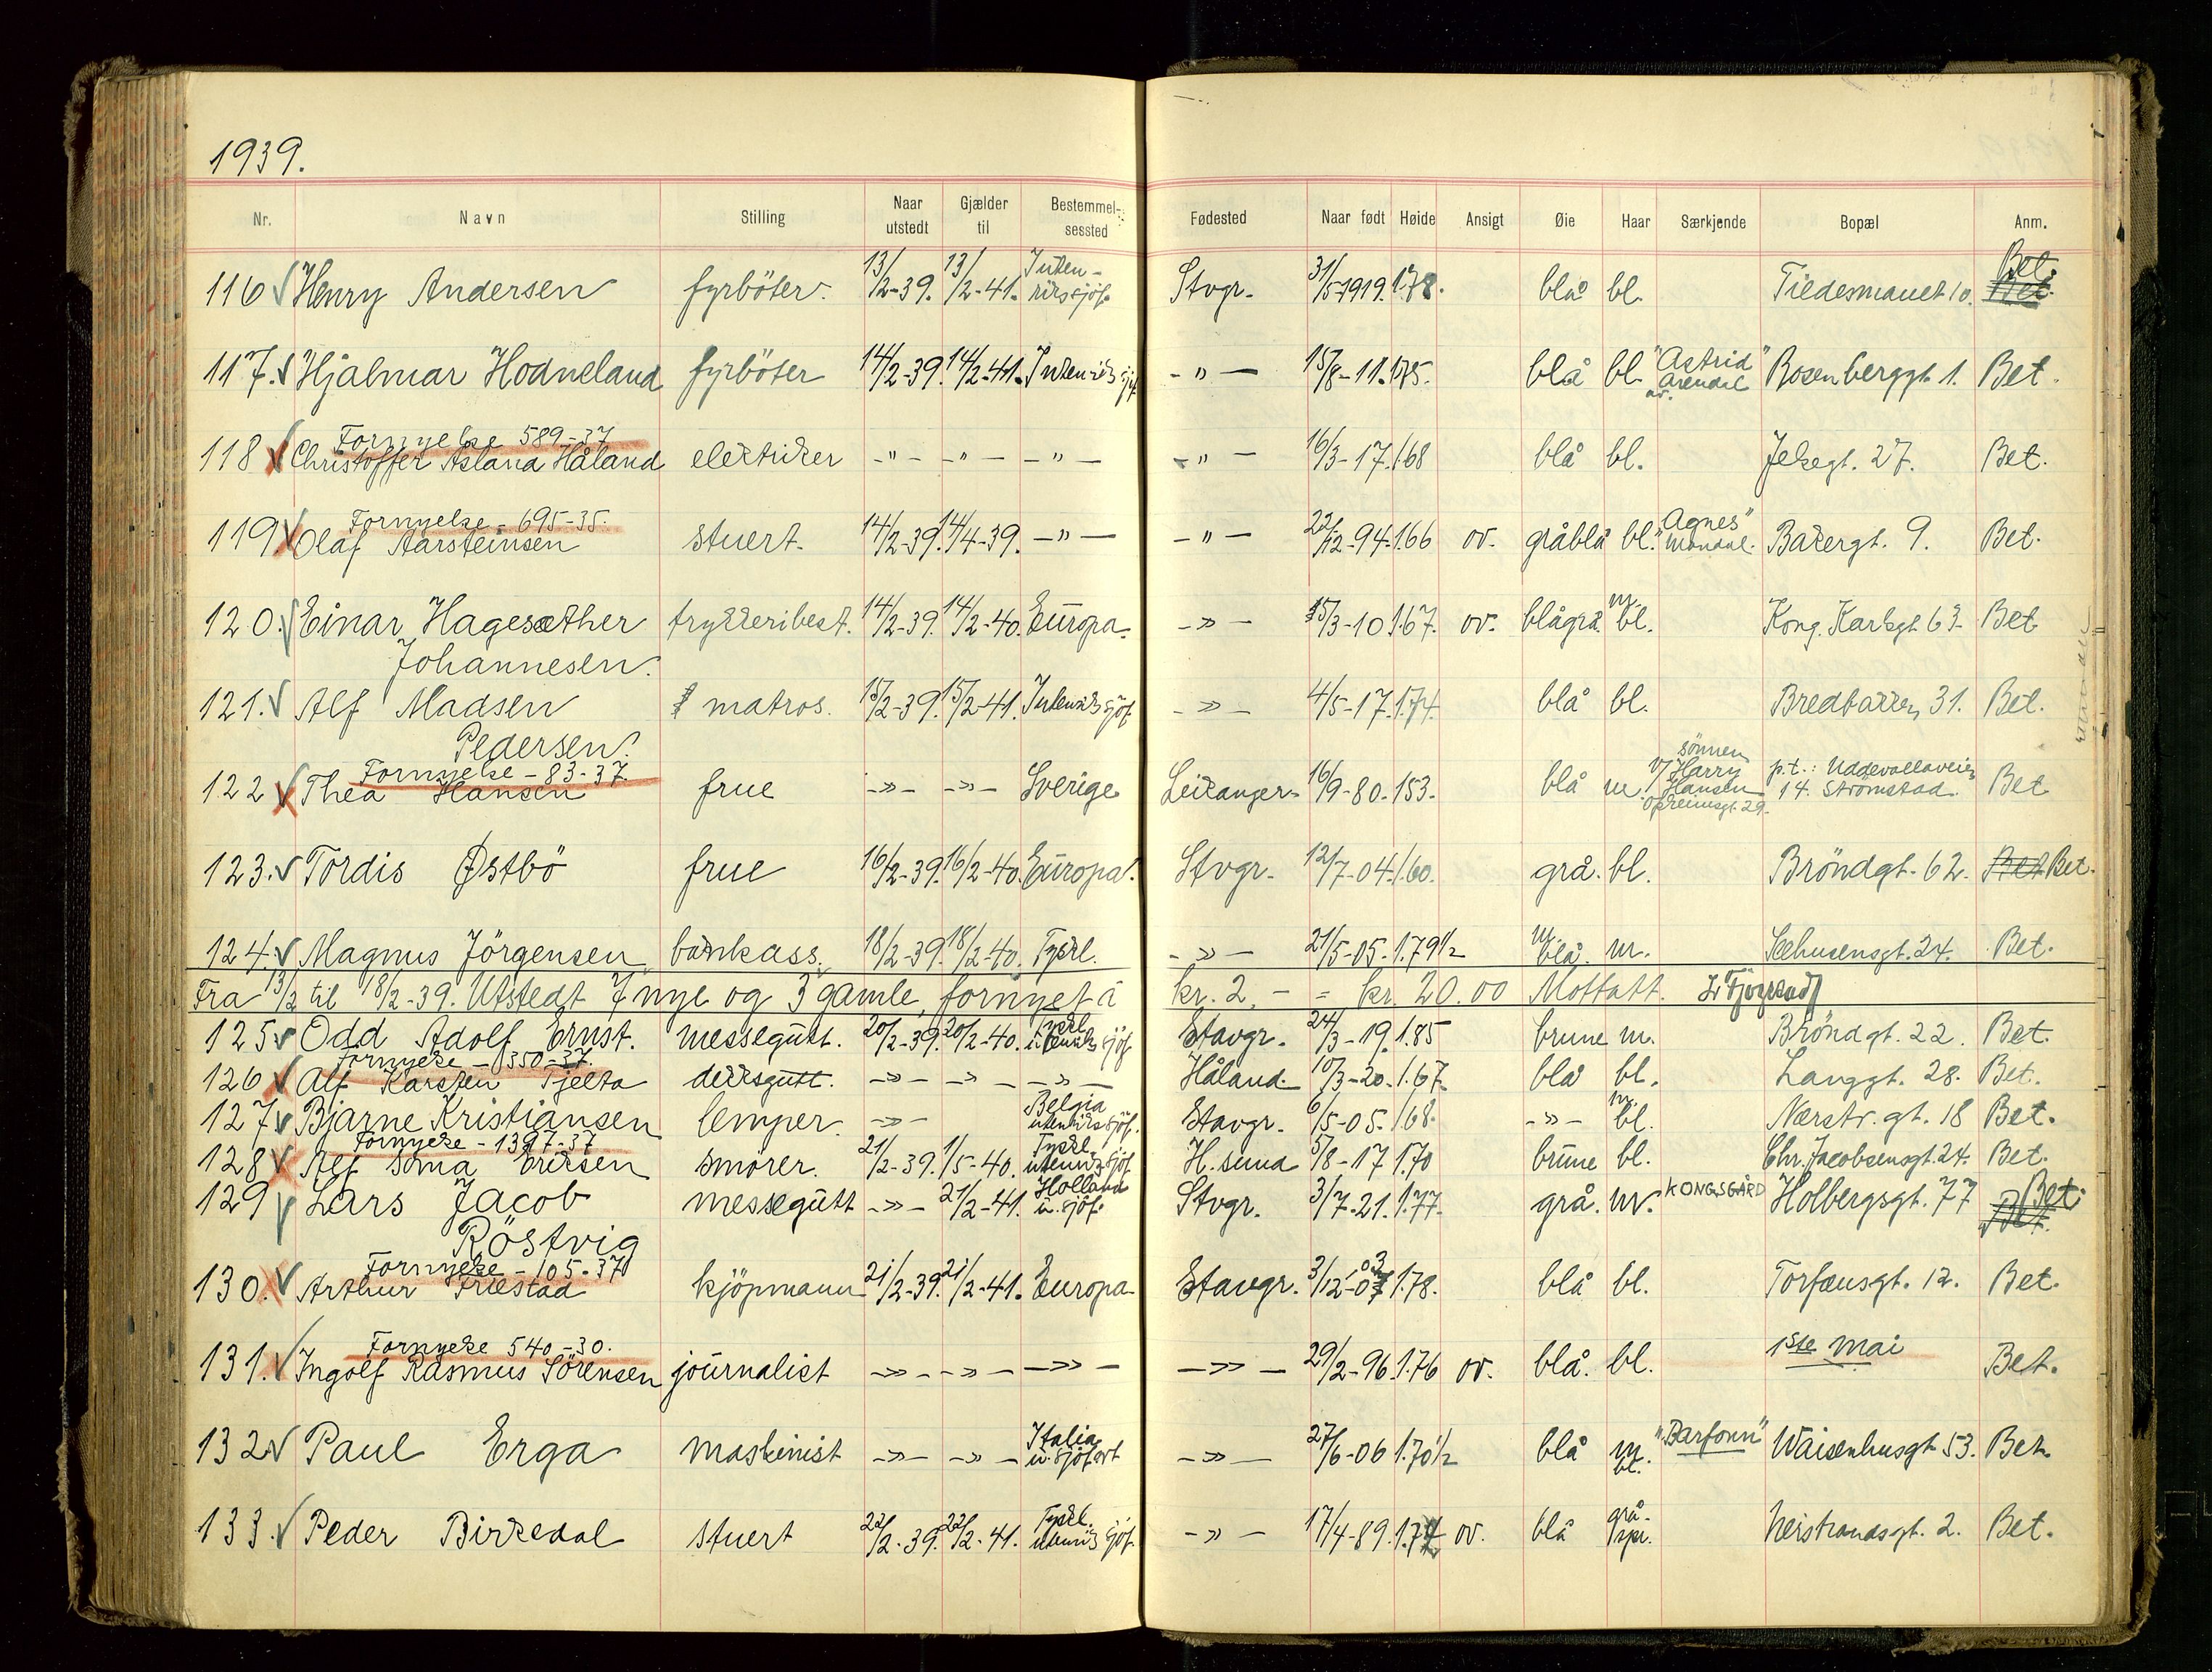 1939.
Nr. Navn Stilling Naar utstedt Gjælder til Bestemmelsessted Fødested Naar født Høide Ansigt Øie Haar Særkjende Bopæl Anm.
116 Henry Andersen fyrböter. 13/2-39. 13/2-41. Utenrikssjöf. Stvgr. 31/5-1919. 1.78. blå bl. Tiedesmanet 10. Bet. Bet.
117. Hjalmar Hodneland fyrböter 14/2-39. 14/2-41. Utenriks sjöf. -"- 15/8-11. 1.75. blå bl. "Astrid" av. Arendal Rosenberggt. 1. Bet.
Fornyelse 589-37
118 Christoffer Asland Håland elektriker -"- -"- -"- -"- 16/3-17. 1.68 blå bl. Jelsegt. 27. Bet.
Fornyelse - 695-35.
119 Olaf Aarsteinsen stuert. 14/2-39. 14/4-39. -"- -"- 22/12-94. 1.66 ov. gråblå bl. "Agnes" Mandal. Bakergt. 9. Bet.
120. Einar Hagesæther trykkeribest. 14/2-39. 14/2-40. Europa. -»- 15/3-10 1.67. ov. blågrå. m. bl. Kong. Karlsgt. 63. Bet.
Johannesen.
121. Alf Madsen matros. 15/2-39. 15/2-41. Utenriks sjöf. -»- 4/5-17. 1.74. blå bl. Bredbakken 31. Bet.
Pedersen.
Fornyelse - 83-37.
122 Thea Hansen frue -»- -»- Sverige Leikanger. 16/9-80. 1.53. blå m. v/ sönnen Harry Hansen Opheimsgt. 29. p.t.: Uddevallaveien 14. Strömstad. Bet.
123. Tordis Østbö frue 16/2-39. 16/2-40. Europa. Stvgr. 12/7-04. 1.60. grå. bl. Bröndgt. 62. Bet. Bet.
124. Magnus Jörgensen bankass. 18/2-39. 18/2-40. Tyskl. -»- 21/5-05. 1.79½ m. blå. m. Seehusensgt. 24. Bet.
Fra 13/2 til 18/2-39. Utstedt 7 nye og 3 gamle, fornyet à kr. 2.- = kr. 20.00 Mottatt.
125 Odd Adolf Ernst. messegutt. 20/2-39. 20/2-40. Tyskl. utenriks sjöf. Stavgr. 24/3-19. 1.85 brune m. Bröndgt. 22. Bet.
Fornyelse - 1350-37.
126 Alf Karsten Tjelta dekksgutt. -»- -»- -»- Håland. 10/3-20. 1.67. blå bl. Langgt. 28. Bet.
127 Bjarne Kristiansen lemper. -»- Belgia utenrikssjöf. Stavgr. 6/5-05. 1.68. -»- m. bl. Nerstr. gt. 18 Bet.
Fornyelse - 1397-37
128 Alf Soma Eriksen smörer. 21/2-39. 1/5-40. Tyskl. utenriks sjöf. H.sund 5/8-17 1.70 brune bl. Chr. Jacobsensgt. 24. Bet.
129 Lars Jacob messegutt -»- 21/2-41. Holland u. sjöf. Stvgr. 3/7-21. 1.77. grå. m. KONGSGÅRD Holbergsgt. 77 Bet. Bet.
Röstvig
Fornyelse - 105-37
130. Arthur Friestad kjöpmann 21/2-39. 21/2-41. Europa. Stavgr. 3/12-03 1.78. blå bl. Torfæusgt. 12. Bet.
Fornyelse 540-30.
131. Ingolf Rasmus Sörensen journalist -»- -»- -»- -»- 29/2-96. 1.76 ov. blå. bl. 1ste mai Bet.
132 Paul Erga maskinist -»- -»- Italia u. sjöfart -»- 27/6-06 1.70½ blå m. bl. "Barfonn" Waisenhusgt 53. Bet.
133. Peder Birkedal stuert 22/2-39. 22/2-41. Tyskl. utenriks sjöf. -»- 17/4-89. 1.74 ov. blå grå-spr. Nerstrandsgt. 2. Bet.